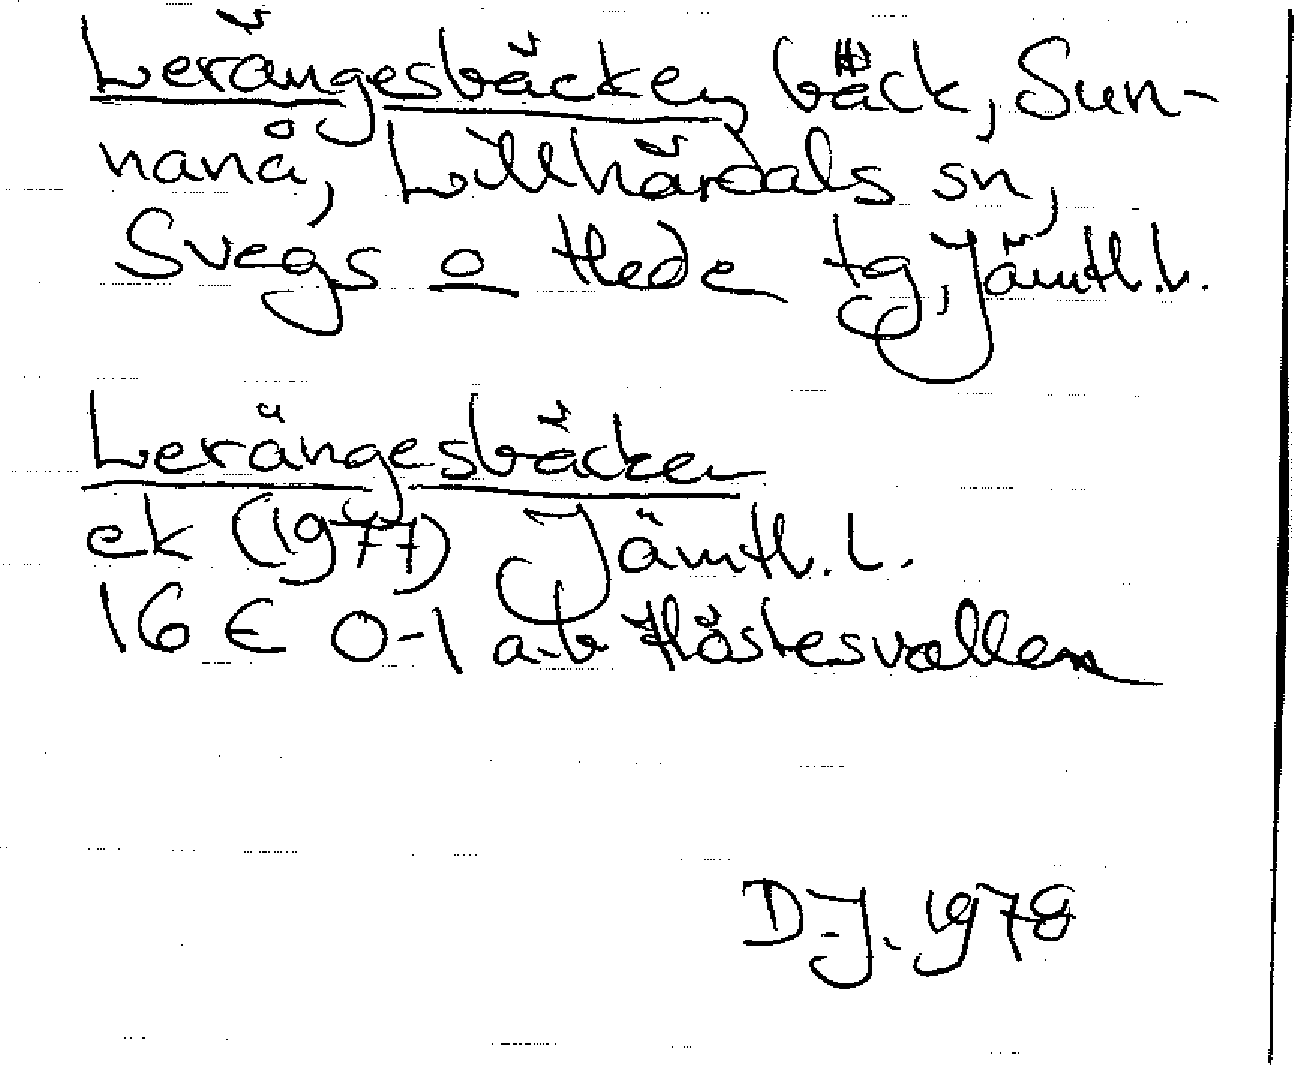 Lerängesbäcken, bäck, Sun-
nanå, Lillhärdals sn,
Svegs o Hede tg, Jämtl.l.
Lerängesbäcken
ek (1977) Jämtl. l.
16 E 0-1 a-b Höstesvallen
D.J. 1978